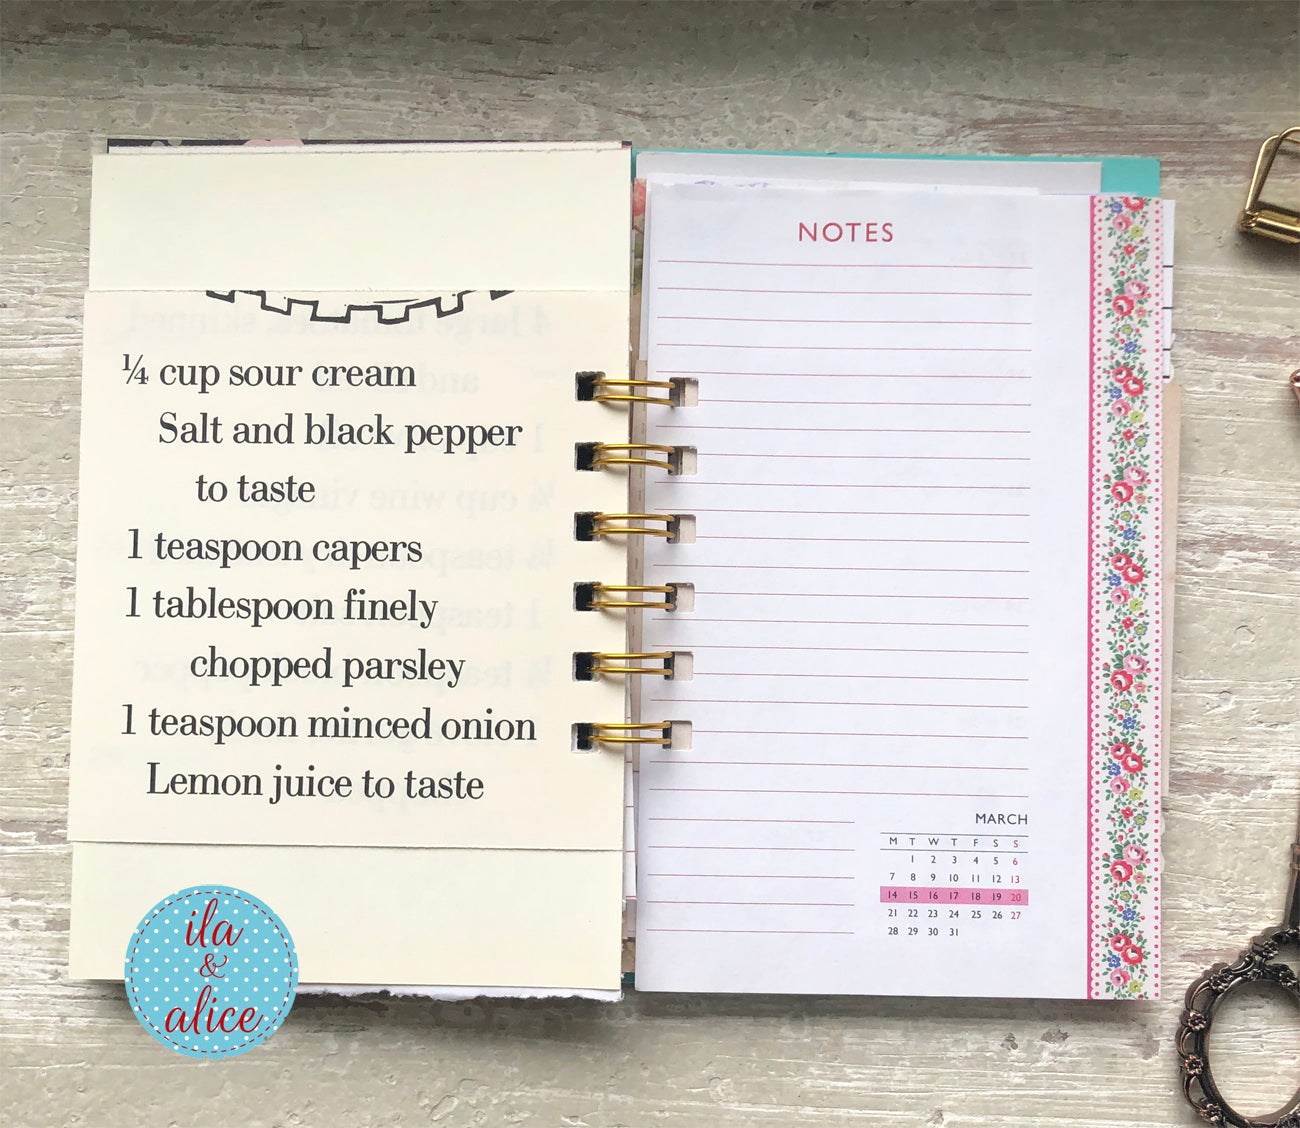 ¼ cup sour cream
Salt and black pepper
to taste
1 teaspoon capers
1 tablespoon finely
chopped parsley
1 teaspoon minced onion
Lemon juice to taste
ila
&
alice
NOTES
MARCH
M T W T F S S
1 2 3 4 5 6
7 8 9 10 11 12 13
14 15 16 17 18 19 20
21 22 23 24 25 26 27
28 29 30 31